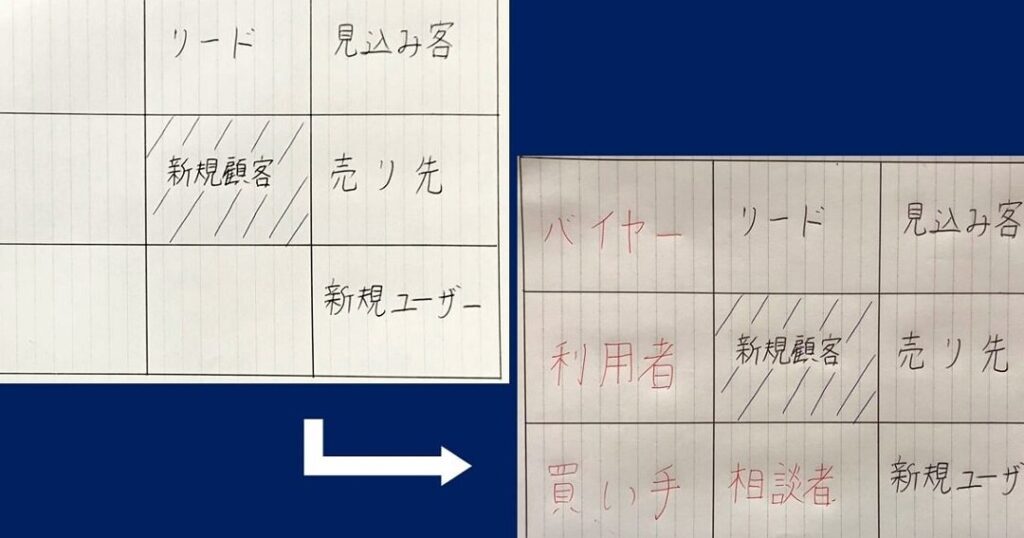 リード 見込み客
新規顧客 売り先
新規ユーザー
バイヤー リード 見込み客
利用者 新規顧客 売り先
買い手 相談者 新規ユーザ